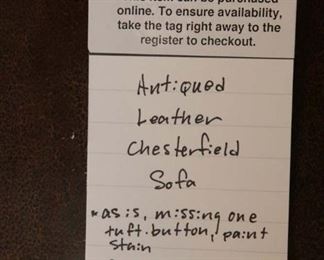 online. To ensure availability,
take the tag right away to the
register to checkout.
Antiqued
Leather
Chesterfield
Sofa
*as is, missing one
tuft button, paint
stain